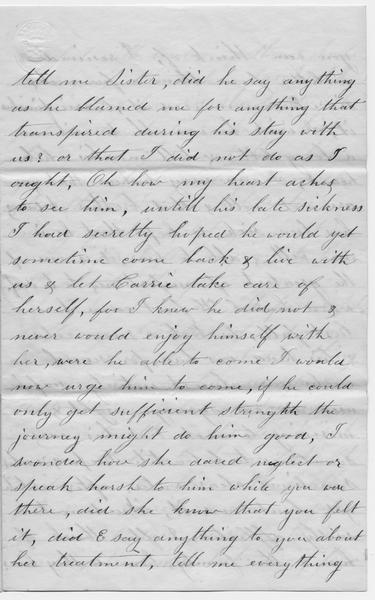 tell me Sister, did he say anything
as he blamed me for anything that
transpired during his stay with
us? or that I did not do as I
ought, Oh how my heart aches
to see him, untill his late sickness
I had secretly hoped he would yet
sometime come back & live with
us & let Carrie take care of
herself, for I knew he did not &
never would enjoy himself with
her, were he able to come I would
now urge him to come, if he could
only get sufficient strenghth the
journey might do him good, I
wonder how she dared neglect or
speak harsh to him while you were
there, did she know that you felt
it, did E say anything to you about
her treatment, tell me everything